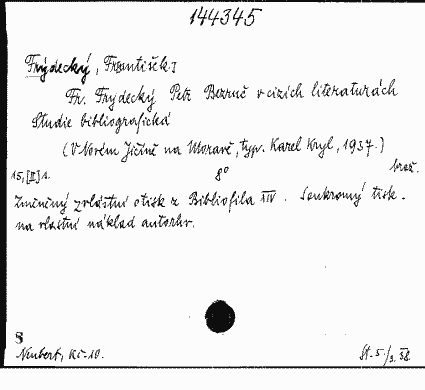 144345
Frýdecký, František]
Fr. Frýdecký Petr Bezruč v cizích literaturách
Studie bibliografická
(V Novém Jičíně na Moravě, typ. Karel Kryl, 1937.)
15, [II] s. 8° brož.
zvláštní otisk z Bibliofila XIV. Soukromý tisk.
na vlastní náklad autorův.
8
Neubert, Kč-10. St. 5/3. 38